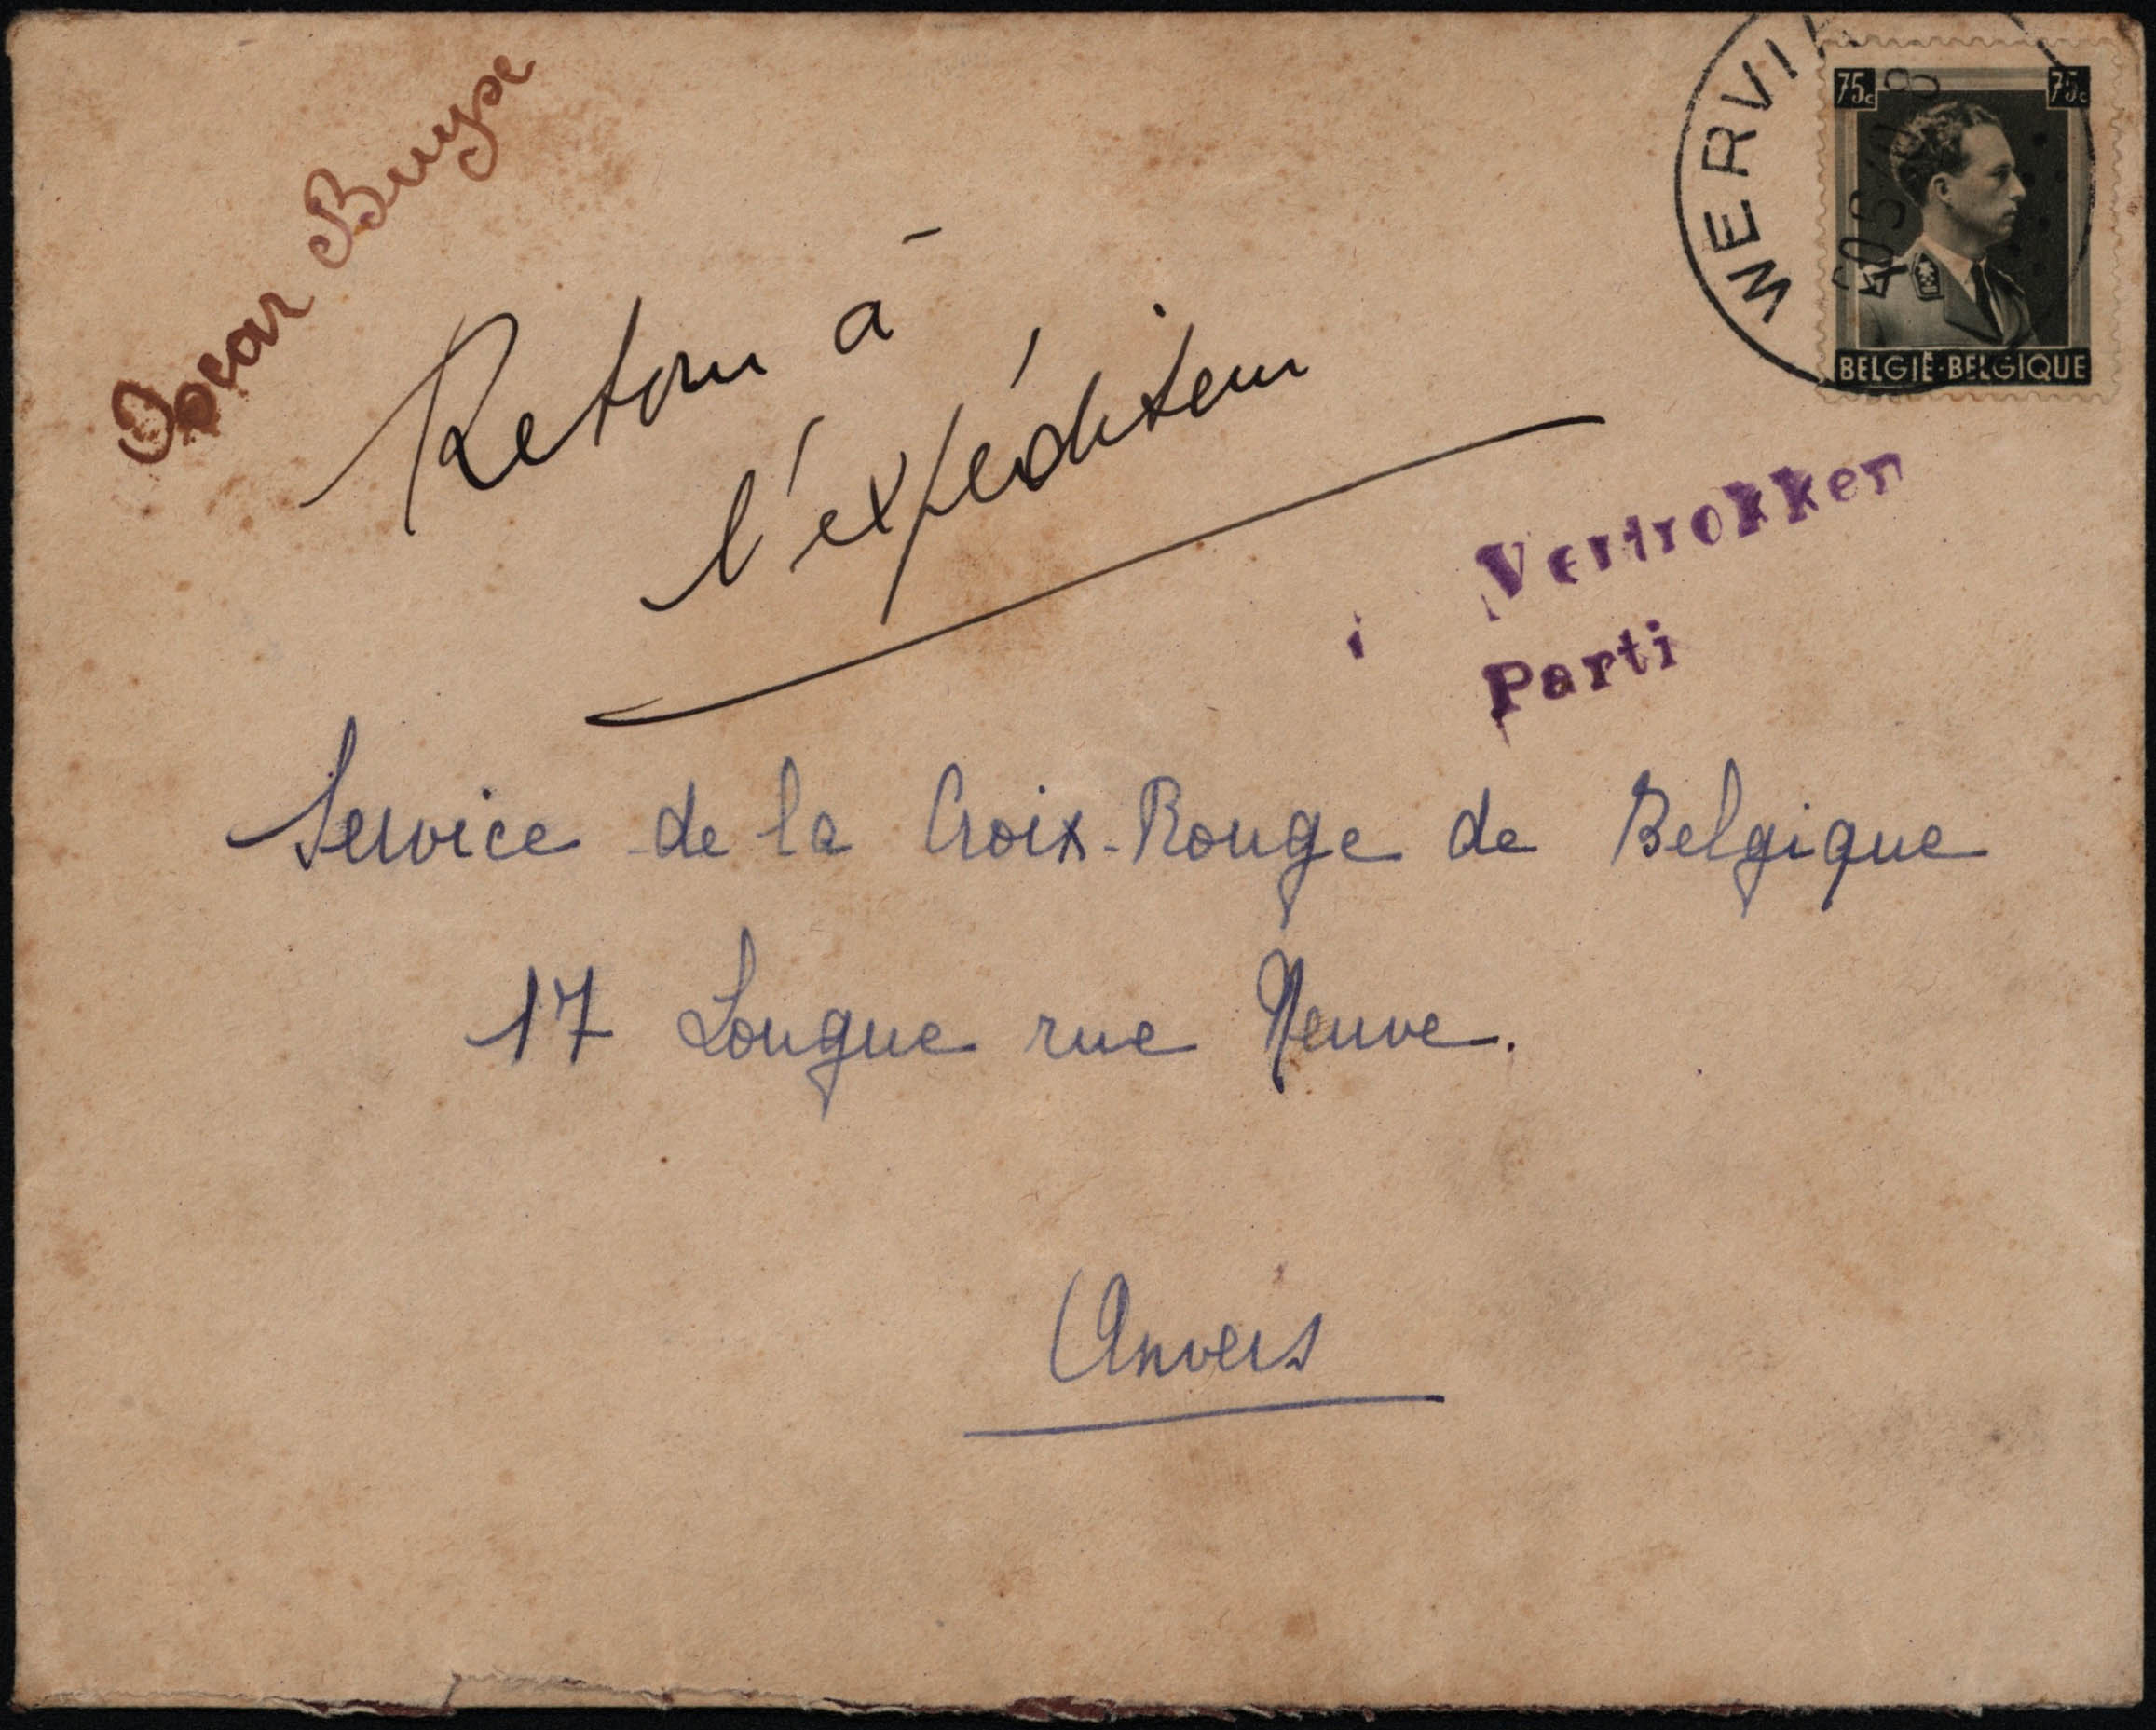 Oscar Buyse
Retour à
l'expéditeur
WERVI
75c 75c
BELGIË·BELGIQUE
Vertrokken
Parti
Service de la Croix-Rouge de Belgique
17 Longue rue Neuve.
Anvers